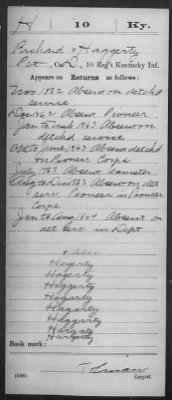 H 10 Ky.
Richard Haggerty
Pvt, Co. D., 10 Reg't Kentucky Inf.
Appears on Returns as follows:
Nov 1862 Absent on detchd
service
Dec 1862 Absent Pioneer
Jan to 1863 Absent on
detchd service
Apl to June, 1863 Absent detchd
on Pioneer Corps
July 1863 Absent
Aug to Dec 1863 Absent on det
serv. Pioneer in Pioneer
Corps
Jan to Aug 1864 Absent on
det serv in Dept
Hagerty
Hagerty
Hagerty
Hagarty
Hagarty
Haggarty
Hargaty
Book mark:
(546)
Copyist.